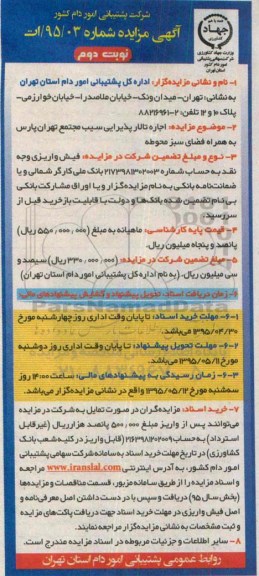 شرکت پشتیبانی امور دام کشور
آگهی مزایده شماره ۹۵/۰۳/ات
نوبت دوم
جهاد
وزارت جهاد کشاورزی
شرکت سهامی پشتیبانی
امور دام کشور
استان تهران
۱- نام و نشانی مزایده‌گزار: اداره کل پشتیبانی امور دام استان تهران
به نشانی: تهران- میدان ونک- خیابان ملاصدرا- خیابان خوارزمی-
پلاک ۱۰ و ۱۲ تلفن: ۲-۸۸۲۱۶۹۶۱
۲- موضوع مزایده: اجاره تالار پذیرایی سیب مجتمع تهران پارس
به همراه فضای سبز محوطه
۳- نوع و مبلغ تضمین شرکت در مزایده: فیش واریزی وجه
نقد به حساب شماره ۲۱۷۳۹۸۱۳۰۲۰۰۳ بانک ملی کارگر شمالی و یا
ضمانت‌نامه بانکی به نام مزایده‌گزار و یا اوراق مشارکت بانکی
بی‌نام تضمین شده بانک‌ها و دولت با قابلیت بازخرید قبل از
سررسید.
۴- قیمت پایه کارشناسی: ماهیانه به مبلغ (۵۵۰/۰۰۰/۰۰۰ ریال)
پانصد و پنجاه میلیون ریال.
۵- مبلغ تضمین شرکت در مزایده: (۳۳۰/۰۰۰/۰۰۰ ریال) سیصد و
سی میلیون ریال. (به نام اداره کل پشتیبانی امور دام استان تهران)
۶- زمان دریافت اسناد، تحویل پیشنهاد و گشایش پیشنهادهای مالی:
۶-۱- مهلت خرید اسناد: تا پایان وقت اداری روز چهارشنبه مورخ
۱۳۹۵/۰۴/۳۰ می‌باشد.
۶-۲- مهلت تحویل پیشنهاد: تا پایان وقت اداری روز دوشنبه
مورخ ۱۳۹۵/۰۵/۱۱ می‌باشد.
۶-۳- زمان رسیدگی به پیشنهادهای مالی: ساعت ۱۴:۰۰ روز
سه‌شنبه مورخ ۱۳۹۵/۰۵/۱۲ واقع در نشانی مزایده‌گزار می‌باشد.
۷- خرید اسناد: مزایده‌گران در صورت تمایل به شرکت در مزایده
می‌توانند پس از واریز مبلغ ۵۰۰/۰۰۰ پانصد هزار ریال (غیرقابل
استرداد) به حساب ۲۱۶۳۹۸۱۲۰۲۰۰۹ (قابل واریز در کلیه شعب بانک
کشاورزی) در تاریخ مهلت خرید اسناد به سامانه شرکت سهامی پشتیبانی
امور دام کشور، به آدرس اینترنتی www.iranslal.com مراجعه
و اسناد مزایده را از طریق سامانه مزبور، قسمت مناقصات و مزایده‌ها
(بخش سال ۹۵) دریافت و سپس با در دست داشتن اصل معرفی‌نامه و
اصل فیش واریزی در مهلت خرید اسناد جهت دریافت پاکت‌های مزایده
و ثبت مشخصات به نشانی مزایده‌گزار مراجعه نمایند.
۸- سایر اطلاعات و جزئیات مربوطه در اسناد مزایده مندرج است.
روابط عمومی پشتیبانی امور دام استان تهران